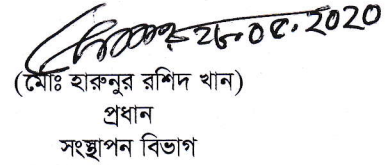 ২৮.০৫.2020
(মোঃ হারুনুর রশিদ খান)
প্রধান
সংস্থাপন বিভাগ